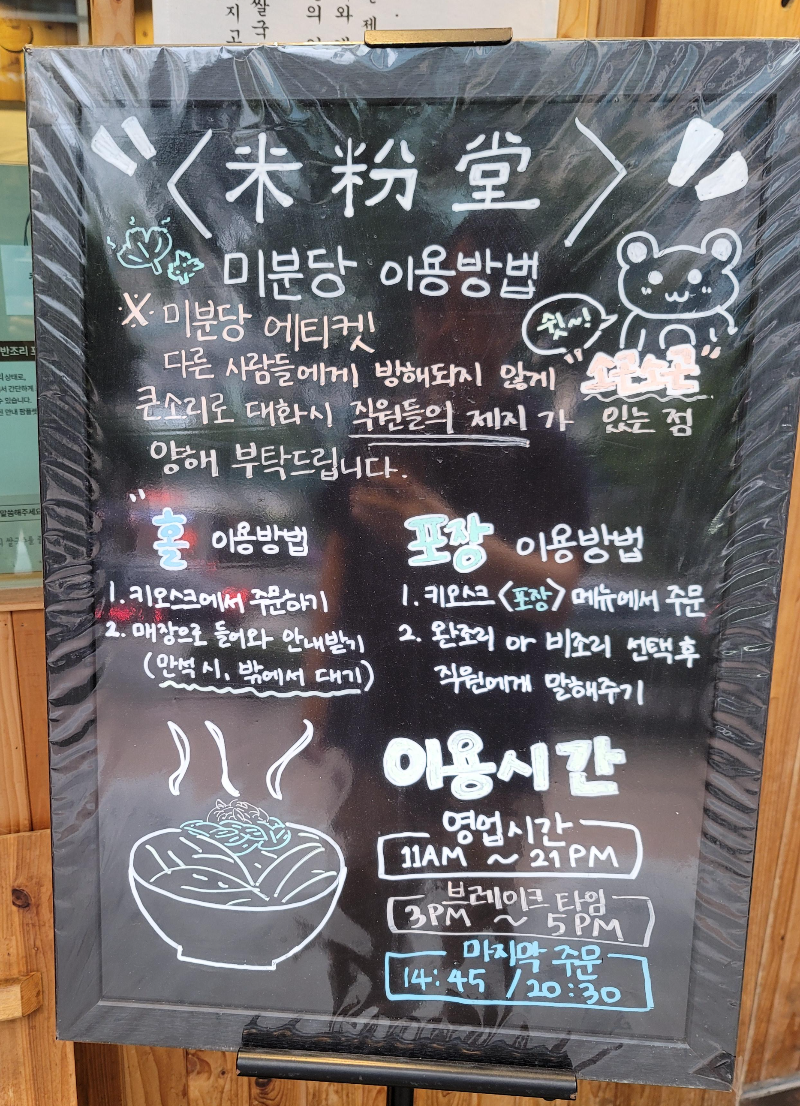 쌀국
지고
의
와
제
〈米粉堂〉
미분당 이용방법
쉿~!
X 미분당 에티켓
다른 사람들에게 방해되지 않게 "소근소근"
큰소리로 대화시 직원들의 제지가 있는 점
양해 부탁드립니다.
홀 이용방법
1. 키오스크에서 주문하기
2. 매장으로 들어와 안내받기
(만석 시, 밖에서 대기)
포장 이용방법
1. 키오스크 〈포장〉 메뉴에서 주문
2. 완조리 or 비조리 선택 후
직원에게 말해주기
이용시간
영업시간
11AM ~ 21PM
브레이크 타임
3PM ~ 5PM
마지막 주문
14:45 / 20:30
반조리 포
상태로,
서 간단하게
수 있습니다.
서 안내 팜플렛
말씀해주세요